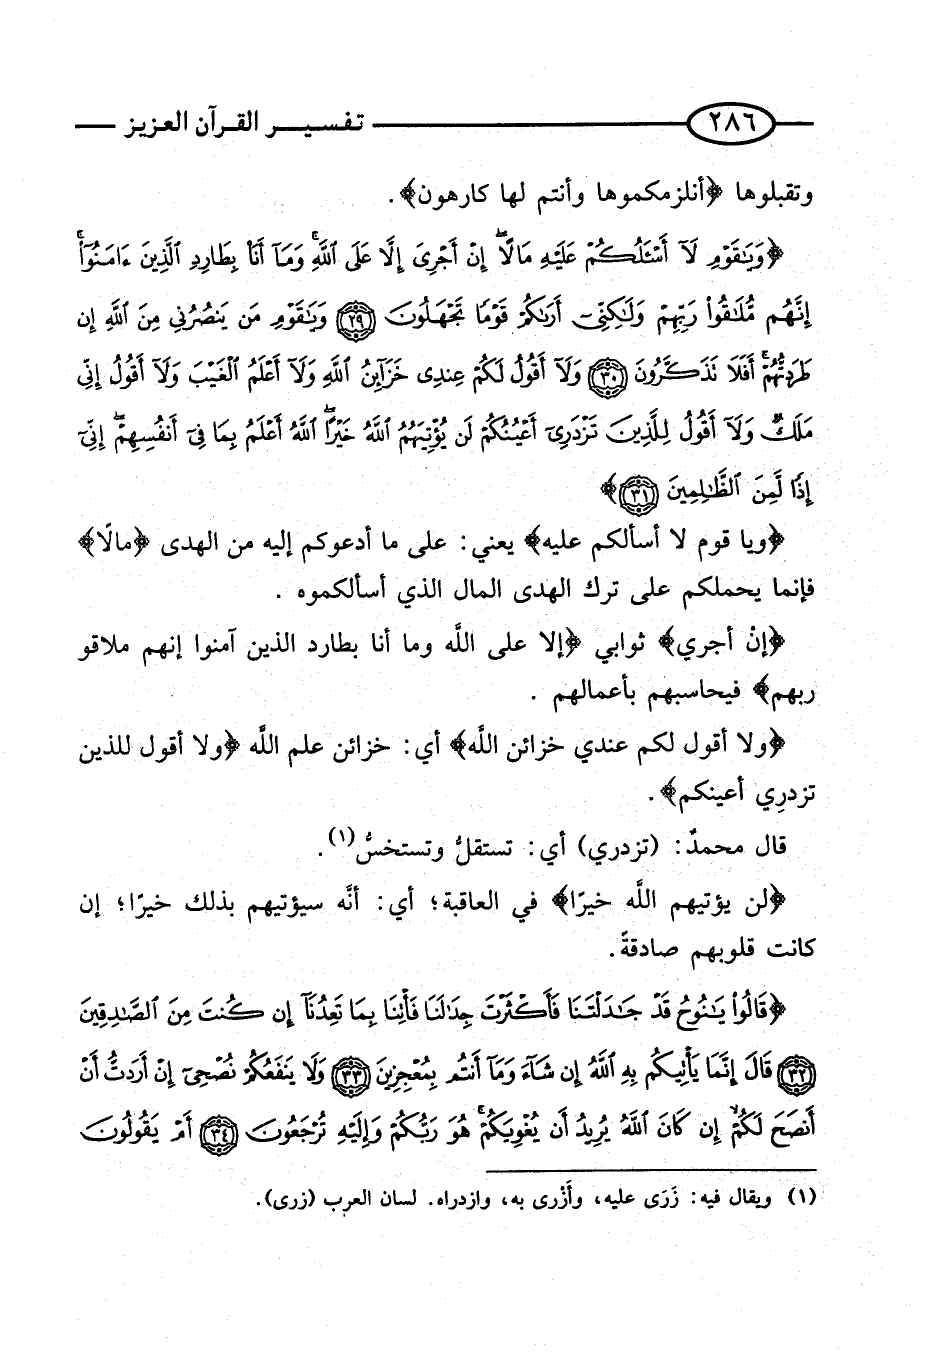 ٢٨٦ تفسير القرآن العزيز
وتقبلوها ﴿أنلزمكموها وأنتم لها كارهون﴾ .
﴿وَيَٰقَوْمِ لَآ أَسْـَٔلُكُمْ عَلَيْهِ مَالًا ۖ إِنْ أَجْرِىَ إِلَّا عَلَى ٱللَّهِ ۚ وَمَآ أَنَا۠ بِطَارِدِ ٱلَّذِينَ ءَامَنُوٓا۟ ۚ
إِنَّهُم مُّلَٰقُوا۟ رَبِّهِمْ وَلَٰكِنِّىٓ أَرَىٰكُمْ قَوْمًا تَجْهَلُونَ ٢٩ وَيَٰقَوْمِ مَن يَنصُرُنِى مِنَ ٱللَّهِ إِن
طَرَدتُّهُمْ ۚ أَفَلَا تَذَكَّرُونَ ٣٠ وَلَآ أَقُولُ لَكُمْ عِندِى خَزَآئِنُ ٱللَّهِ وَلَآ أَعْلَمُ ٱلْغَيْبَ وَلَآ أَقُولُ إِنِّى
مَلَكٌ وَلَآ أَقُولُ لِلَّذِينَ تَزْدَرِىٓ أَعْيُنُكُمْ لَن يُؤْتِيَهُمُ ٱللَّهُ خَيْرًا ۖ ٱللَّهُ أَعْلَمُ بِمَا فِىٓ أَنفُسِهِمْ ۖ إِنِّىٓ
إِذًا لَّمِنَ ٱلظَّٰلِمِينَ ٣١﴾
﴿ويا قوم لا أسألكم عليه﴾ يعني: على ما أدعوكم إليه من الهدى ﴿مالًا﴾
فإنما يحملكم على ترك الهدى المال الذي أسألكموه .
﴿إنْ أجري﴾ ثوابي ﴿إلا على اللَّه وما أنا بطارد الذين آمنوا إنهم ملاقو
ربهم﴾ فيحاسبهم بأعمالهم .
﴿ولا أقول لكم عندي خزائن اللَّه﴾ أي: خزائن علم اللَّه ﴿ولا أقول للذين
تزدرِي أعينكم﴾.
قال محمدٌ: (تزدري) أي: تستقلُّ وتستخسُّ(١).
﴿لن يؤتيهم اللَّه خيرًا﴾ في العاقبة؛ أي: أنَّه سيؤتيهم بذلك خيرًا؛ إن
كانت قلوبهم صادقةً.
﴿قَالُوا۟ يَٰنُوحُ قَدْ جَٰدَلْتَنَا فَأَكْثَرْتَ جِدَٰلَنَا فَأْتِنَا بِمَا تَعِدُنَآ إِن كُنتَ مِنَ ٱلصَّٰدِقِينَ
٣٢ قَالَ إِنَّمَا يَأْتِيكُم بِهِ ٱللَّهُ إِن شَآءَ وَمَآ أَنتُم بِمُعْجِزِينَ ٣٣ وَلَا يَنفَعُكُمْ نُصْحِىٓ إِنْ أَرَدتُّ أَنْ
أَنصَحَ لَكُمْ إِن كَانَ ٱللَّهُ يُرِيدُ أَن يُغْوِيَكُمْ ۚ هُوَ رَبُّكُمْ وَإِلَيْهِ تُرْجَعُونَ ٣٤ أَمْ يَقُولُونَ
(١) ويقال فيه: زَرَى عليه، وأَزْرى به، وازدراه. لسان العرب (زرى).